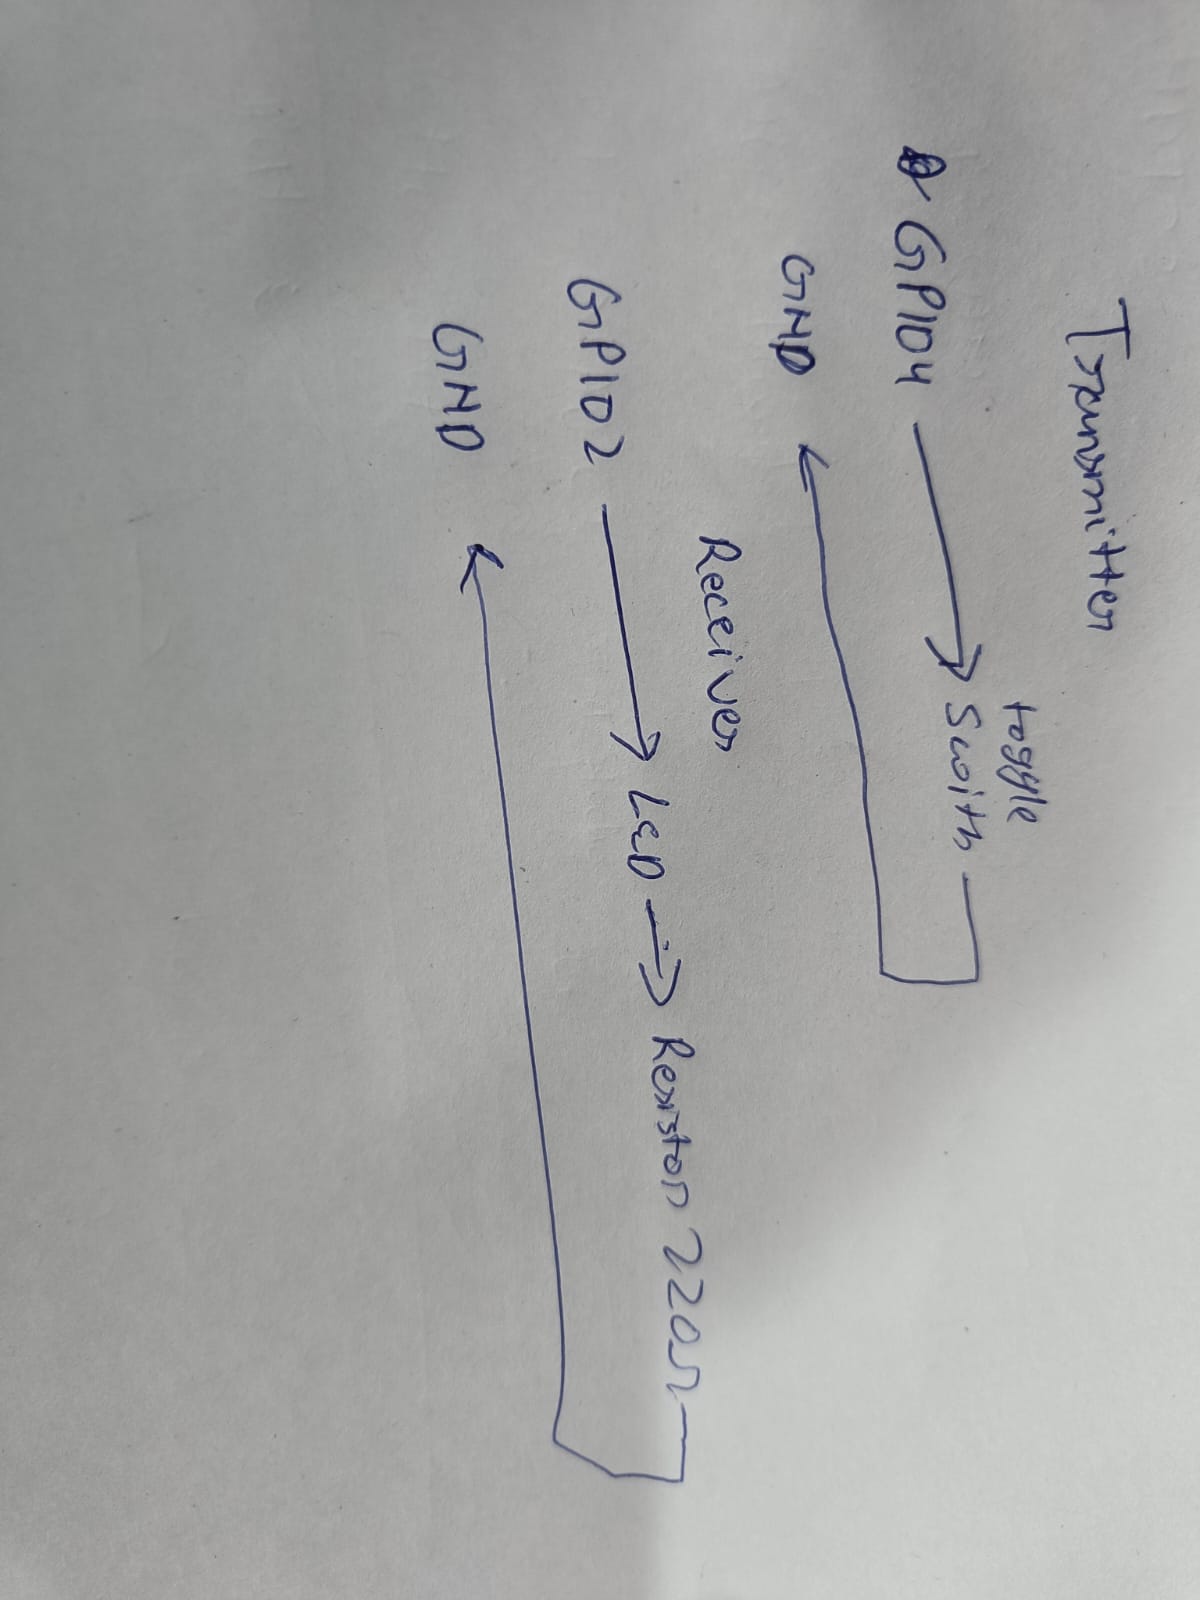 Transmitter
GPIO4 → toggle Swith
GND
Receiver
GPIO2 → LED → Resistor 220Ω
GND